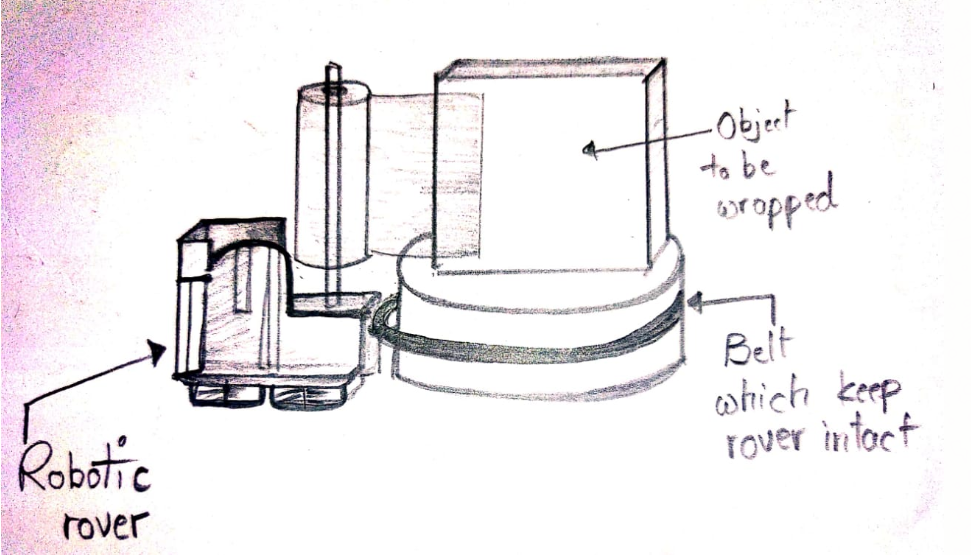 Object
to be
wrapped
Belt
which keep
rover intact
Robotic
rover